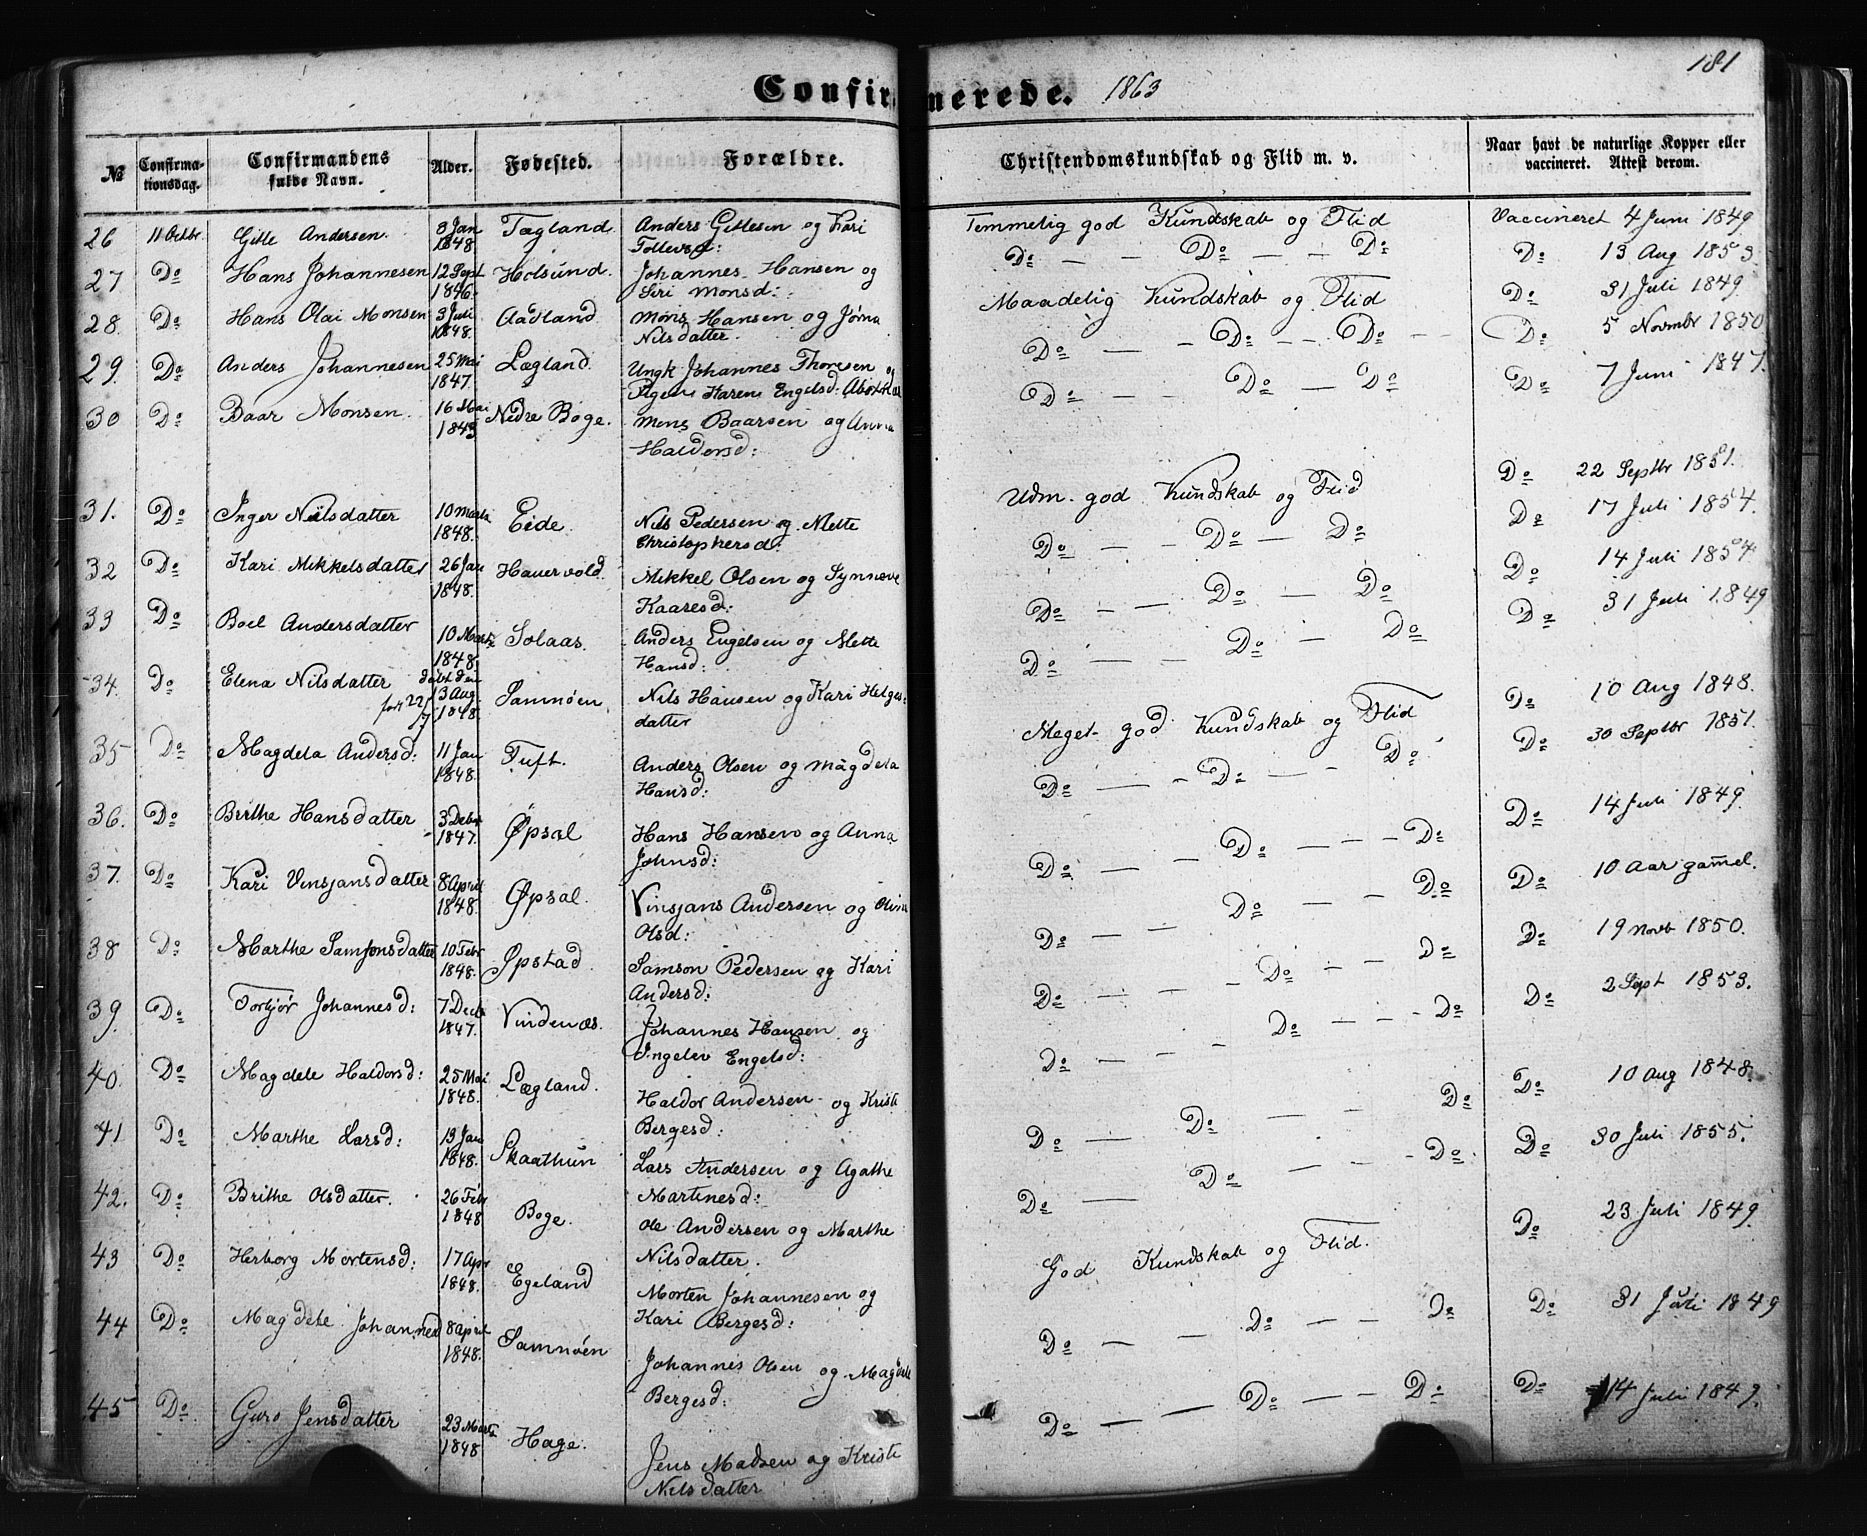 181
Confirmerede. 1863
№ Confirmationsdag. Confirmandens fulde Navn. Alder. Fødested. Forældre. Christendomskundskab og Flid m. v. Naar havt de naturlige Kopper eller vaccineret. Attest derom.
26 11 Octbr. Gitle Andersen. 3 Jan 1848 Tægland. Anders Gitlesen og Kari Tollevsd: Temmelig god Kundskab og Flid Vaccineret 4 Juni 1849
27 Do Hans Johannesen 12 Sept 1846. Holsund. Johannes Hansen og Siri Monsd: Do — — Do — — Do Do 13 Aug 1853.
28. Do Hans Olai Monsen 3 Juli 1848. Aadland Mons Hansen og Jørna Nilsdatter. Maadelig Kundskab og Flid Do 31 Juli 1849
29. Do Anders Johannesen 25 Mai 1847. Lægland. Ungk Johannes Thoresen og Pigen Karen Engelsd: Do — - Do -- Do -- Do 5 Novmbr 1850
30 Do Baar Monsen. 16 Mai 1843 Nedre Bøge. Mons Baarsen og Anna Haldorsd: Do — — Do — Do Do 7 Juni 1847.
31. Do Inger Nilsdatter 10 Marts 1848. Eide. Nils Pedersen og Mette Christophersd: Udm. god Kundskab og Flid Do 22 Septbr 1851.
32 Do Kari Mikkelsdatter 26 Jan 1848. Hauervold. Mikkel Olsen og Synneve Kaaresd: Do — - Do — Do Do 17 Juli 1854.
33 Do Boel Andersdatter 10 Marts 1848. Solaas. Anders Engelsen og Mette Hansd: Do — — Do — Do Do 14 Juli 1854
34. Do Elena Nilsdatter født 22/7 døbt den 13 Aug 1848. Samnøen Nils Hansen og Kari Helgesdatter Do — — Do — Do Do 31 Juli 1849
35 Do Magdela Andersd: 11 Jan 1848. Tuft. Anders Olsen og Magdela Hansd: Meget god Kundskab og Flid Do 10 Aug 1848.
36. Do Brithe Hansdatter 3 Debr 1847. Øpsal Hans Hansen og Anna Johnsd: Do — - Do — - Do Do 30 Septbr 1851.
37. Do Kari Vinsjansdatter 8 April 1848. Øpsal. Vinsjans Andersen og Olsd: Do — — Do — - - Do Do 14 Juli 1849.
38 Do Marthe Samsonsdatter 10 Febr 1848. Øpstad. Samson Pedersen og Kari Andersd: Do — — Do — - Do Do 10 Aar gammel.
39. Do Torbjør Johannesd: 7 Decb 1847. Vindenæs. Johannes Hansen og Ingelev Engelsd: Do — - - Do — - Do Do 19 Novb 1850.
40. Do Magdele Haldorsd: 25 Mai 1848. Lægland. Haldor Andersen og Kristi Bergesd: Do — - - Do - - - Do Do 2 Sept 1853.
41 Do Marthe Larsd: 13 Jan 1848. Skaathun Lars Andersen og Agathe Martinesd: Do — - Do — — Do Do 10 Aug 1848.
42. Do Brithe Olsdatter. 26 Febr 1848 Bøge. Ole Andersen og Marthe Nilsdatter. Do — Do — - - Do Do 30 Juli 1855.
43 Do Herborg Mortensd: 17 Apr 1848. Egeland Morten Johannesen og Kari Bergesd: God Kundskab og Flid. Do 23 Juli 1849.
44 Do Magdele Johannesd 8 April 1848. Samnøen Johannes Olsen og Magdele Bergesd: Do — — Do — — Do Do 31 Juli 1849
45 Do Guro Jensdatter 23 Marts 1848 Hage. Jens Madsen og Kristi Nilsdatter Do — — — Do — — Do Do 14 Juli 1849.